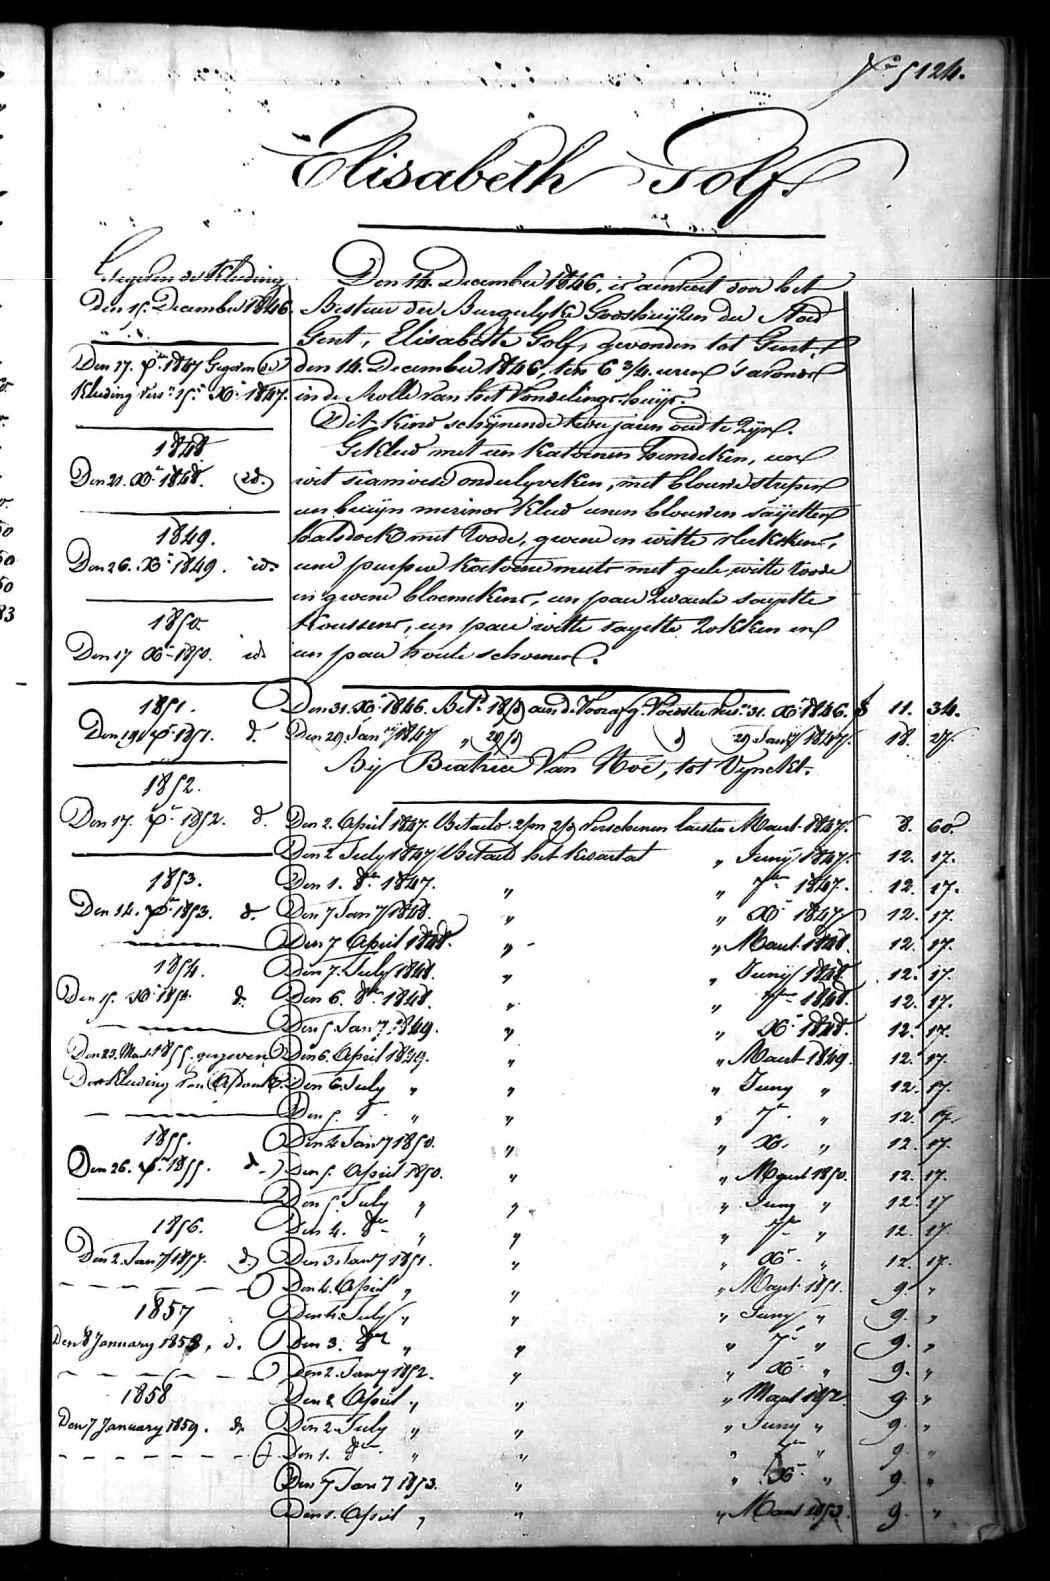 N.º 5124.
Elisabeth Golf.
Gegeven de Kleding
Den 15. December 1846.
Den 17. Xbr 1847 Gegeven de
Kleding vers.n 15.n Xbr 1847.
1848
Den 21. Xbr 1848. id.
1849.
Den 26. Xbr 1849. id.
1850
Den 17 Xbr 1850. id
1851.
Den 19 Xbr 1851. d.
1852.
Den 17. Xbr 1852. d.
1853.
Den 14. Xbr 1853. d.
1854.
Den 15. Xbr 1854. d.
Den 23. Maert 1855. gegeven
Kleding van
1855.
Den 26. Xbr 1855. d.
1856.
Den 2. Jany 1857. d.
1857
Den 8 January 1858, d.
1858
Den 7 January 1859. d.
Den 14. December 1846, is aenveert door het
Bestuer der Burgelyke Godshuyzen der Stad
Gent, Elisabeth Golf, gevonden tot Gent,
den 14. December 1846, ten 6 3/4. uren 's avonds
in de Rolle van het Vondelingshuys.
Dit kind schynende twee jaren oud te Zyn.
Gekleed met een katoenen hemdeken, een
wit siamoise onderlyveken, met blouwe strepen
een bruyn merinos kleed eenen blouwen sayetten
halsdoek met roode, groene en witte vlekskens,
eene purpere katoene muts met gele, witte roode
en groene bloemekens, een paer zwarte sayette
koussens, een paer witte sayette zokken en
een paer houte schoenen.
Den 31. Xbr 1846. Bet.d 18/d aen d. Voorafg. Voedster vers.n 31. Xbr 1846. f 11. 34.
Den 29 Jany 1847 " 29/d d 29 Jany 1847. 18. 27.
By Beatrice Van Hoe, tot Vynckt.
Den 2. April 1847. Betaeld 2/m 2/d verschenen laesten Maert 1847. 8. 60.
Den 2 July 1847 Betaeld het kwartael " Juny 1847. 12. 17.
Den 1. 8br 1847. " " 7br 1847. 12. 17.
Den 7 Jany 1848. " " Xbr 1847 12. 17.
Den 7 April 1848. " " Maert 1848. 12. 17.
Den 7. July 1848. " " Juny 1848 12. 17.
Den 6. 8br 1848 " " 7br 1848. 12. 17.
Den 5 Jany 1849. " " Xbr 1848. 12. 17.
Den 6. April 1849. " " Maert 1849. 12. 17.
Den 6 July " " " Juny " 12. 17.
Den 5. 8br " " " 7br " 12. 17.
Den 4 Jany 1850. " " Xbr " 12. 17.
Den 5. April 1850. " " Maert 1850. 12. 17.
Den 5 July " " " Juny " 12. 17
Den 4. 8br " " " 7br " 12. 17
Den 3 Jany 1851. " " Xbr " 12. 17.
Den 4. April " " " Maert 1851. 9. "
Den 4. July " " " Juny " 9. "
Den 3. 8br " " " 7br " 9. "
Den 2. Jany 1852. " " Xbr " 9. "
Den 2 April " " " Maert 1852. 9. "
Den 2 July " " " Juny " 9. "
Den 1. 8br " " " 7br " 9. "
Den 7 Jany 1853. " " Xbr " 9. "
Den 1. April " " " Maert 1853. 9. "